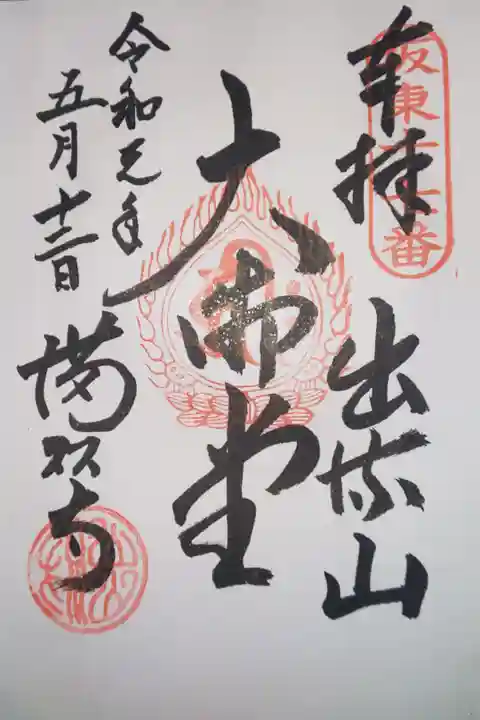 坂東十七番
奉拝
出流山
大御堂
令和元年
五月十三日
満願寺